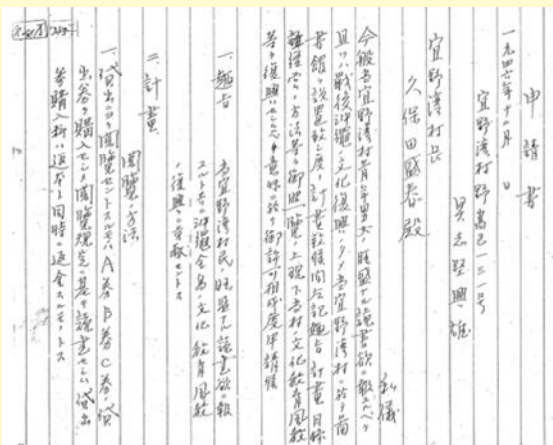 申請書
一九四六年十一月 日
宜野湾村野嵩己一三一号
宜野湾村長
久保田盛春殿
私儀
今般当宜野湾村青年男女ノ旺盛ナル読書欲ニ報ユベク
且ツハ戦後沖縄ノ文化復興ノタメ当宜野湾村ニ於テ
書館ノ設置致シ度ク計画致候間左記趣旨計画目録
並運営ノ方法等御照覧ノ上現下当村ノ文化教育風教
等ノ復興ニ意味ニ於テ御許可相成度申請候
一、趣旨
当宜野湾村民ノ旺盛ナル読書欲ニ報
ユルト共ニ沖縄全島ノ文化教育風教
ノ復興ニ貢献セントス
二、計画
閲覧方法
一、貸出シヲ閲覧セントスルモノハA券B券C券ノ貸
出券ヲ購入セシメ閲覧規定ニ基キ読書セシム貸出
券購入料ハ返本ト同時ニ返金スルモノトス